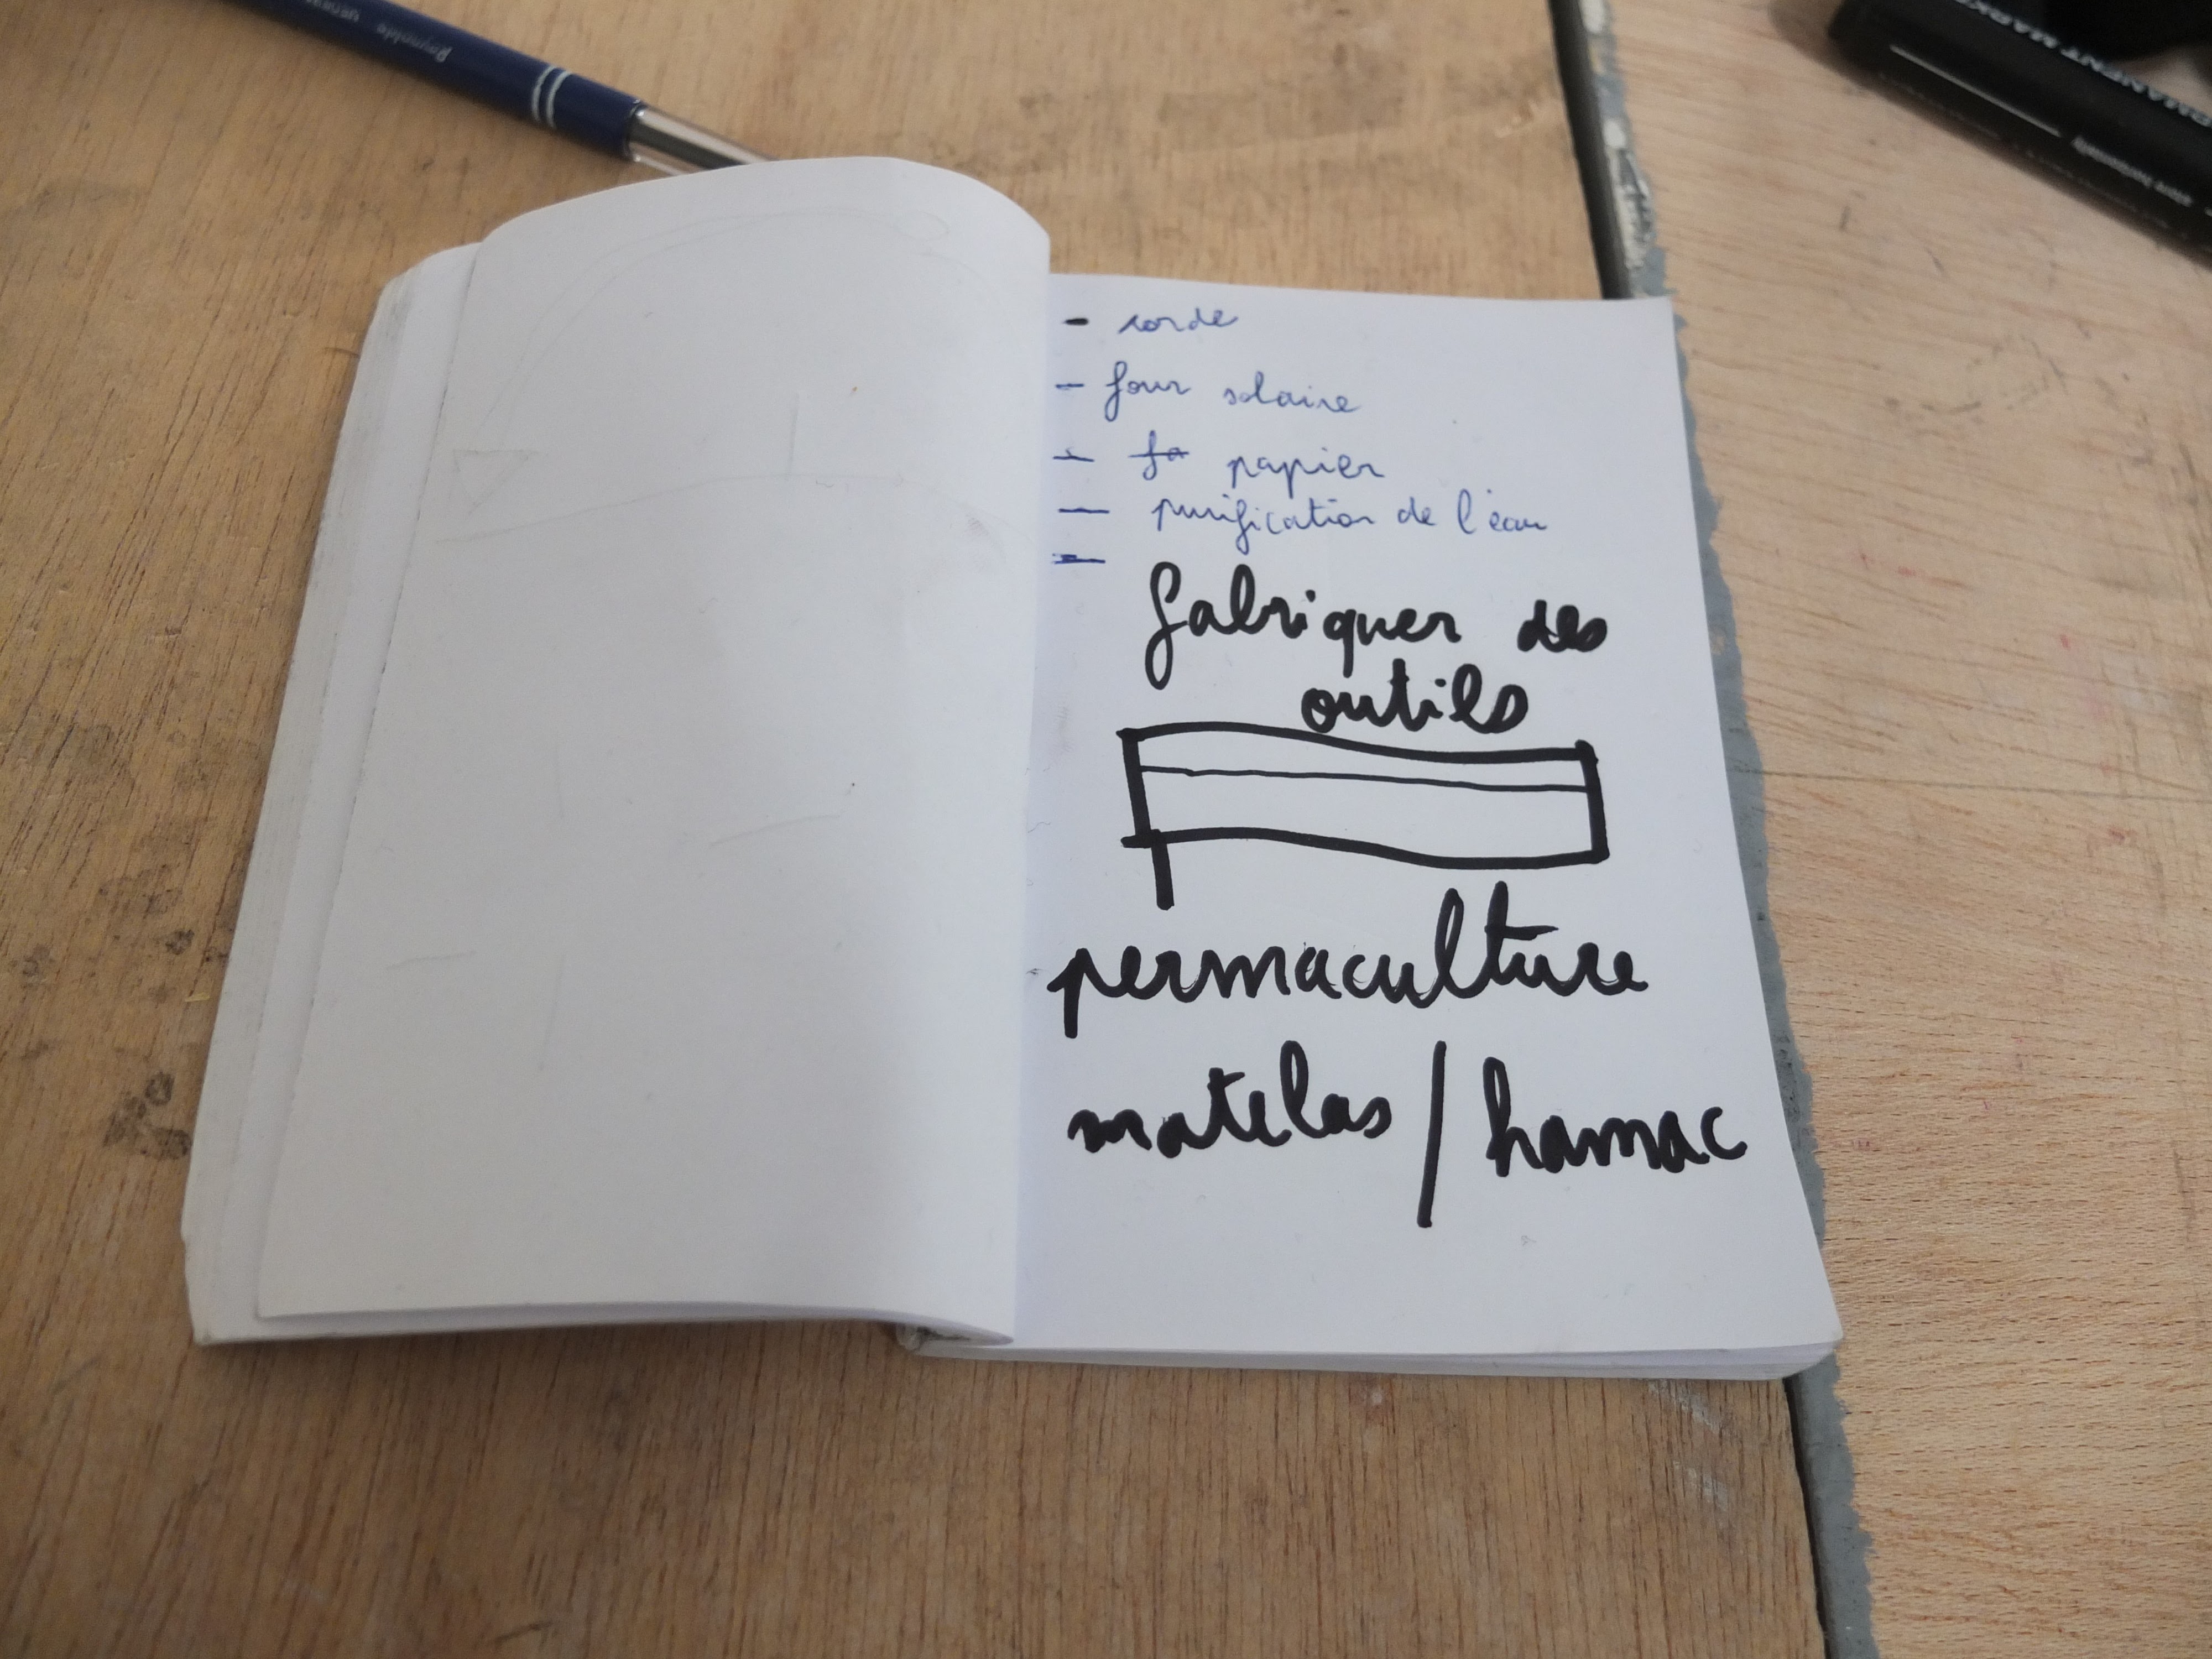 Reynolds
PERMANENT MARKER
- corde
- four solaire
- fa papier
- purification de l'eau
-
fabriquer des
outils
permaculture
matelas / hamac